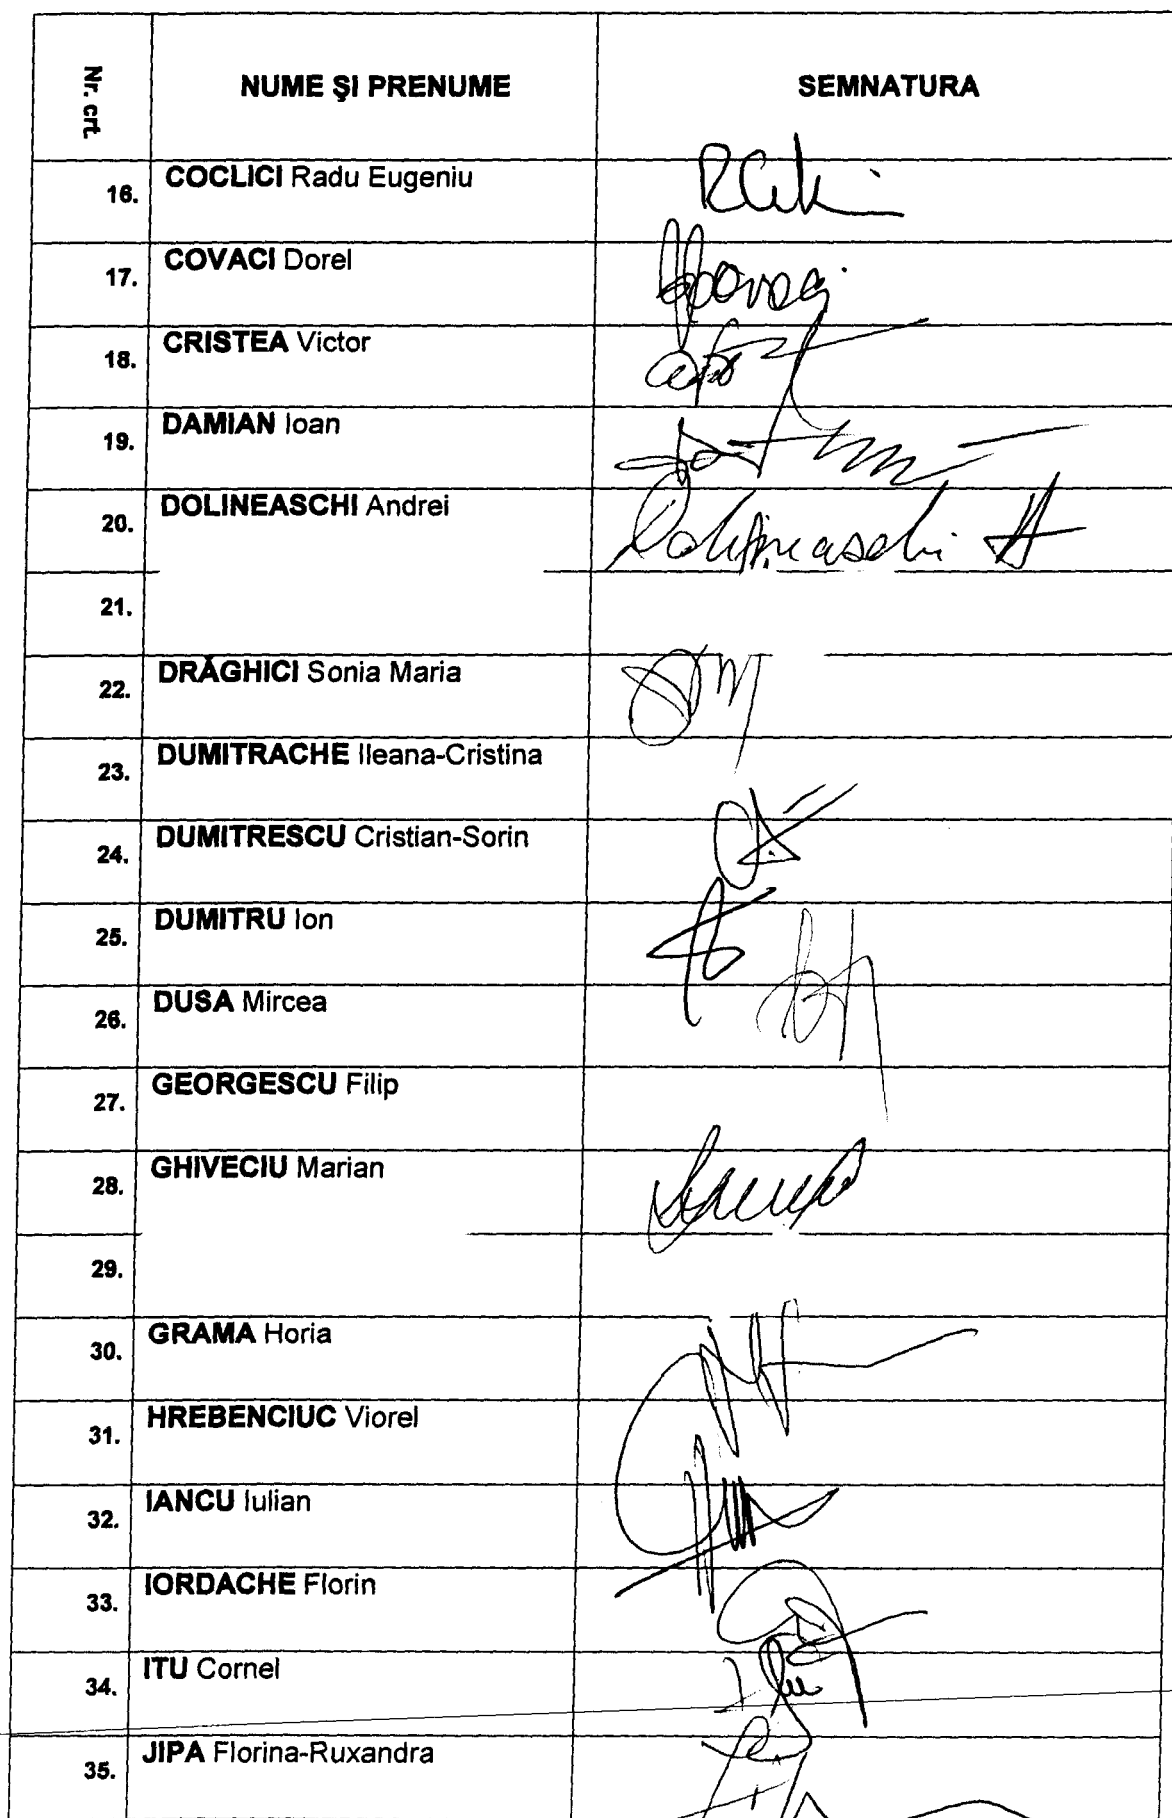 Nr. crt. NUME ŞI PRENUME SEMNATURA
16. COCLICI Radu Eugeniu
17. COVACI Dorel
18. CRISTEA Victor
19. DAMIAN Ioan
20. DOLINEASCHI Andrei Dolineaschi A
21.
22. DRĂGHICI Sonia Maria
23. DUMITRACHE Ileana-Cristina
24. DUMITRESCU Cristian-Sorin
25. DUMITRU Ion
26. DUSA Mircea
27. GEORGESCU Filip
28. GHIVECIU Marian
29.
30. GRAMA Horia
31. HREBENCIUC Viorel
32. IANCU Iulian
33. IORDACHE Florin
34. ITU Cornel
35. JIPA Florina-Ruxandra